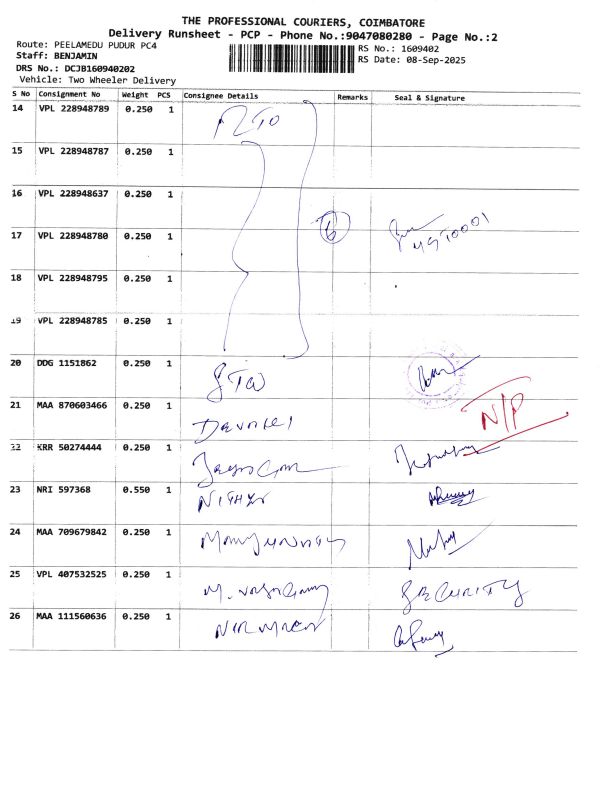 THE PROFESSIONAL COURIERS, COIMBATORE
Delivery Runsheet - PCP - Phone No.:9047080280 - Page No.:2
Route: PEELAMEDU PUDUR PC4
RS No.: 1609402
Staff: BENJAMIN
RS Date: 08-Sep-2025
DRS No.: DCJB160940202
Vehicle: Two Wheeler Delivery
S No Consignment No Weight PCS Consignee Details Remarks Seal & Signature
14 VPL 228948789 0.250 1 RTO
15 VPL 228948787 0.250 1
16 VPL 228948637 0.250 1
6
17 VPL 228948780 0.250 1
18 VPL 228948795 0.250 1
19 VPL 228948785 0.250 1
20 DDG 1151862 0.250 1
21 MAA 870603466 0.250 1 N/P
22 KRR 50274444 0.250 1
23 NRI 597368 0.550 1
24 MAA 709679842 0.250 1
25 VPL 407532525 0.250 1 SECURITY
26 MAA 111560636 0.250 1